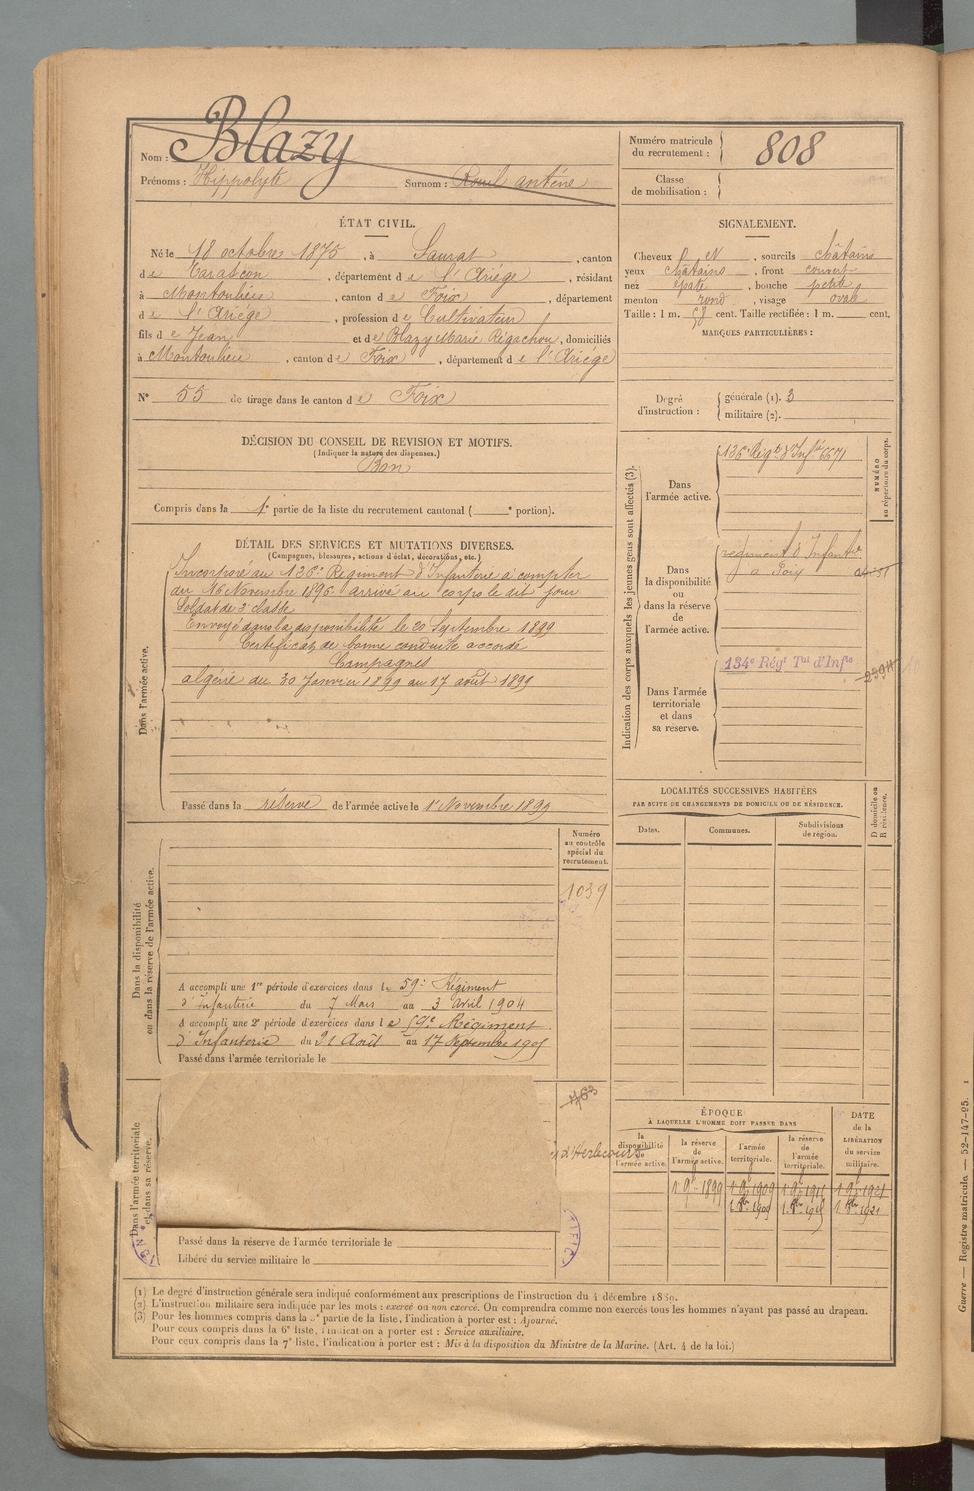 Nom : Blazy
Prénoms : Hippolyte Surnom :
Numéro matricule du recrutement : 808
Classe de mobilisation :
ÉTAT CIVIL.
Né le 18 octobre 1875, à Saurat, canton
de Tarascon, département de l'Ariége, résidant
à Montoulieu, canton de Foix, département
de l'Ariége, profession de Cultivateur
fils de Jean et de Blazy Marie Rigachou, domiciliés
à Montoulieu, canton de Foix, département de l'Ariége
N° 55 de tirage dans le canton de Foix
SIGNALEMENT.
Cheveux, sourcils châtains
yeux châtains, front couvert
nez épaté, bouche petite
menton rond, visage ovale
Taille : 1 m. 58 cent. Taille rectifiée : 1 m. cent.
MARQUES PARTICULIÈRES :
Degré d'instruction : générale (1). 3
militaire (2).
DÉCISION DU CONSEIL DE REVISION ET MOTIFS.
(Indiquer la nature des dispenses.)
Bon
Compris dans la 1e partie de la liste du recrutement cantonal ( e portion).
DÉTAIL DES SERVICES ET MUTATIONS DIVERSES.
(Campagnes, blessures, actions d'éclat, décorations, etc.)
Dans l'armée active.
Incorporé au 126e Régiment d'Infanterie à compter
du 16 Novembre 1896 arrivé au corps le dit jour
Soldat de 2e classe
Envoyé dans la disponibilité le 20 Septembre 1899
Certificat de bonne conduite accordé
Campagnes
algérie du 30 Janvier 1899 au 17 août 1899
Passé dans la réserve de l'armée active le 1er Novembre 1899
Indication des corps auxquels les jeunes gens sont affectés (3).
NUMÉRO au répertoire du corps.
Dans l'armée active.
126e Régt d'Infie 6671
Dans la disponibilité ou dans la réserve de l'armée active.
régiment d'Infanterie
à Foix
Dans l'armée territoriale et dans sa réserve.
134e Régt Tal d'Infie
LOCALITÉS SUCCESSIVES HABITÉES
PAR SUITE DE CHANGEMENTS DE DOMICILE OU DE RÉSIDENCE.
D domicile ou R résidence.
Dates. Communes. Subdivisions de région.
Numéro au contrôle spécial du recrutement.
1039
Dans la disponibilité ou dans la réserve de l'armée active.
A accompli une 1re période d'exercices dans le 59e Régiment
d'Infanterie du 7 Mars au 3 avril 1904
A accompli une 2e période d'exercices dans le 59e Régiment
d'Infanterie du 21 Août au 17 Septembre 1905
Passé dans l'armée territoriale le
Dans l'armée territoriale et dans sa réserve.
d'Herbecourt
Passé dans la réserve de l'armée territoriale le
Libéré du service militaire le
ÉPOQUE
À LAQUELLE L'HOMME DOIT PASSER DANS
la disponibilité de l'armée active.
la réserve de l'armée active.
l'armée territoriale.
la réserve de l'armée territoriale.
DATE de la LIBÉRATION du service militaire.
1 9bre 1899 1 9bre 1909 1 9bre 1915 1 9bre 1921
1 8bre 1909 1 8bre 1915 1 8bre 1921
(1) Le degré d'instruction générale sera indiqué conformément aux prescriptions de l'instruction du 4 décembre 1889.
(2) L'instruction militaire sera indiquée par les mots : exercé ou non exercé. On comprendra comme non exercés tous les hommes n'ayant pas passé au drapeau.
(3) Pour les hommes compris dans la 5e partie de la liste, l'indication à porter est : Ajourné.
Pour ceux compris dans la 6e liste, l'indication à porter est : Service auxiliaire.
Pour ceux compris dans la 7e liste, l'indication à porter est : Mis à la disposition du Ministre de la Marine. (Art. 4 de la loi.)
Guerre — Registre matricule. — 52-147-95.